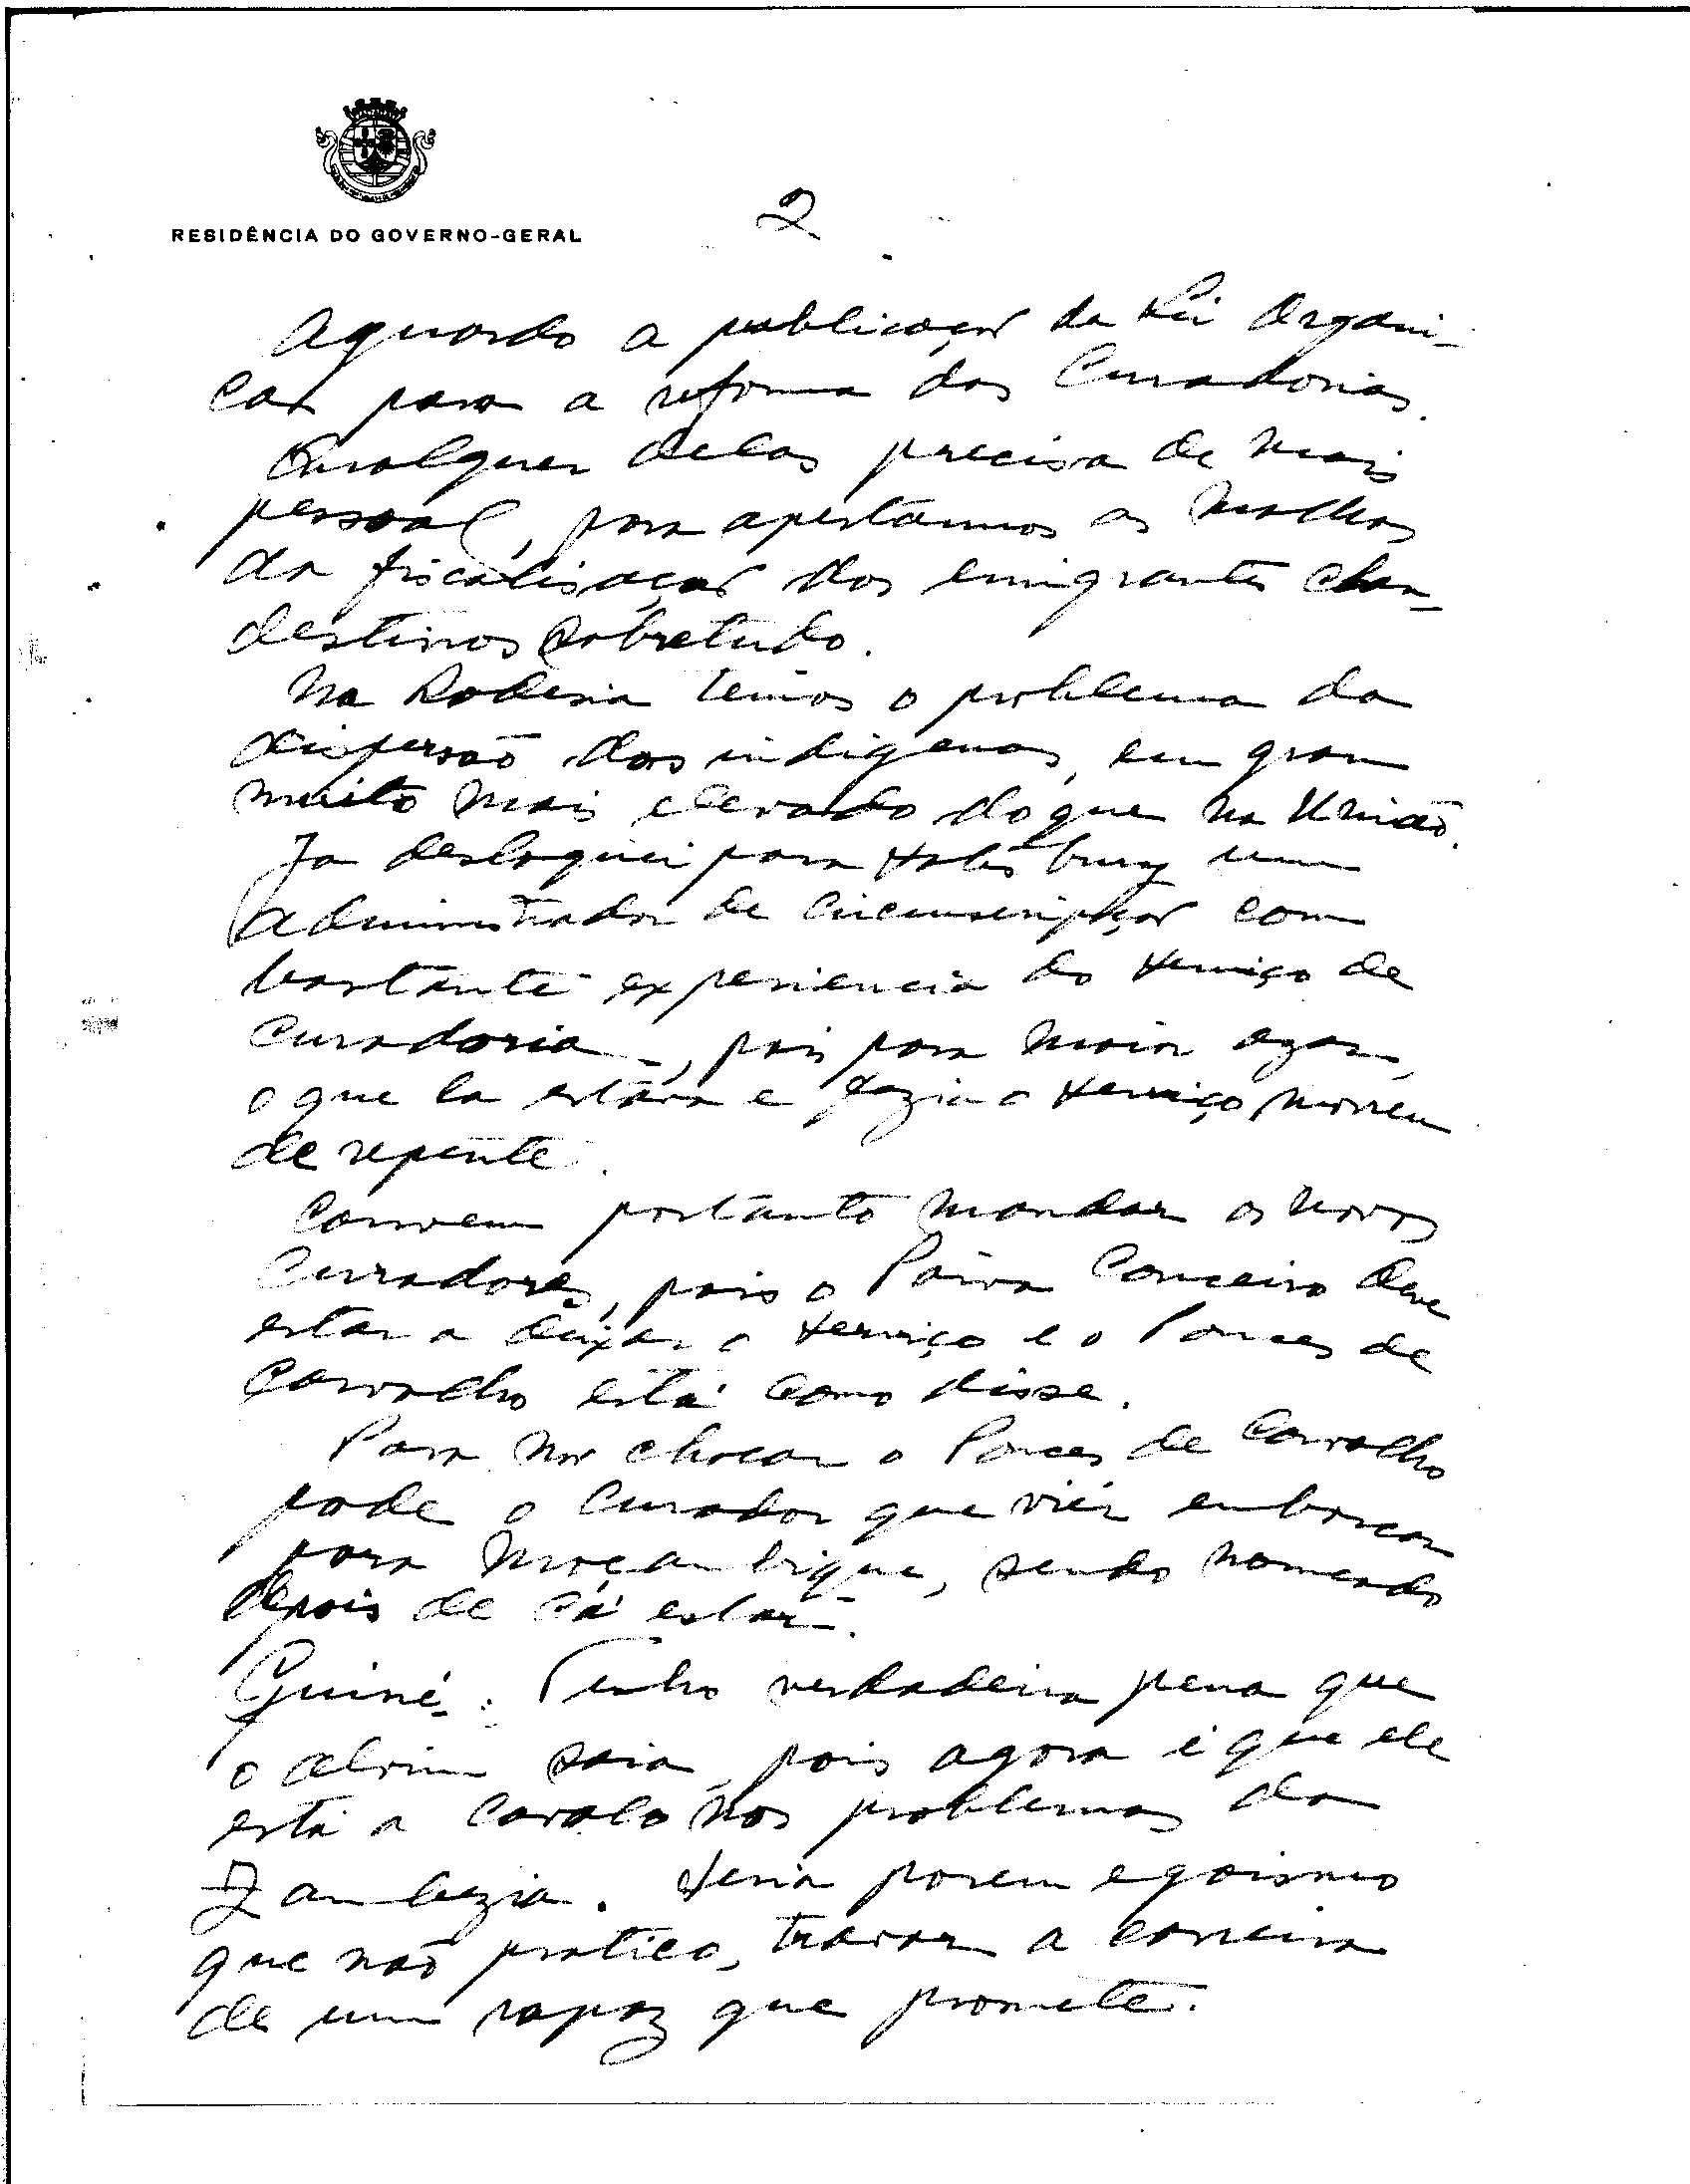 RESIDÊNCIA DO GOVERNO-GERAL
2
Aguardo a publicação da Lei Organi-
ca para a reforma das Curadorias.
Qualquer delas precisa de mais
pessoal, para apertarmos as malhas
da fiscalisação dos emigrantes clan-
destinos sobretudo.
Na Rodesia temos o problema da
dispersão dos indigenas, em grau
muito mais elevado do que na União.
Ja desloquei para Salisbury um
administrador de circunscripção com
bastante experiencia do serviço de
Curadoria, pois para maior azar,
o que la estava e fazia o serviço, morreu
de repente.
Convem portanto mandar os novos
Curadores, pois o Paiva Couceiro deve
estar a deixar o serviço e o Ponces de
Carvalho está como disse.
Para não chocar o Ponces de Carvalho
pode o Curador que vier embarcar
para Moçambique, sendo nomeado
depois de cá estar.
Guiné: Tenho verdadeira pena que
o Alvim saia, pois agora é que ele
está a cavalo nos problemas da
Zambezia. Seria porem egoismo
que não pratico, travar a carreira
de um rapaz que promete.